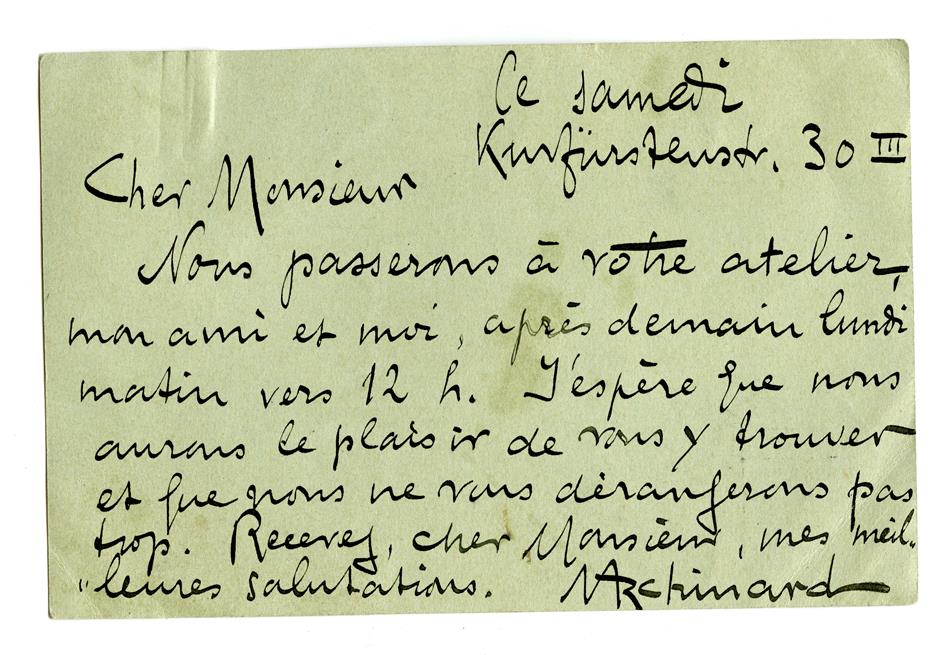 Ce samedi
Kurfürstenstr. 30 III
Cher Monsieur
Nous passerons à votre atelier,
mon ami et moi, après demain lundi
matin vers 12 h. J'espère que nous
aurons le plaisir de vous y trouver
et que nous ne vous dérangerons pas
trop. Recevez, cher Monsieur, mes meil„
„leures salutations. MAckinard